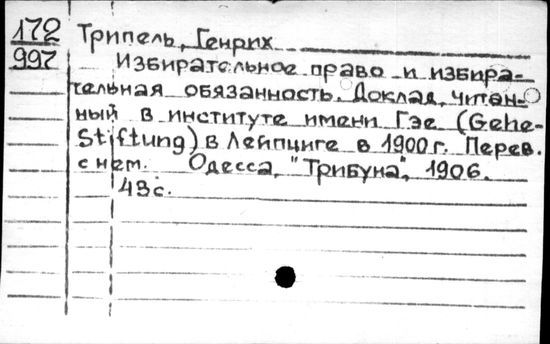 172 Трипель, Генрих
997 Избирательное право и избира-
тельная обязанность. Доклад, читан-
ный в институте имени Гэе (Gehe-
Stiftung) в Лейпциге в 1900 г. Перев.
с нем. Одесса, "Трибуна", 1906.
43 с.